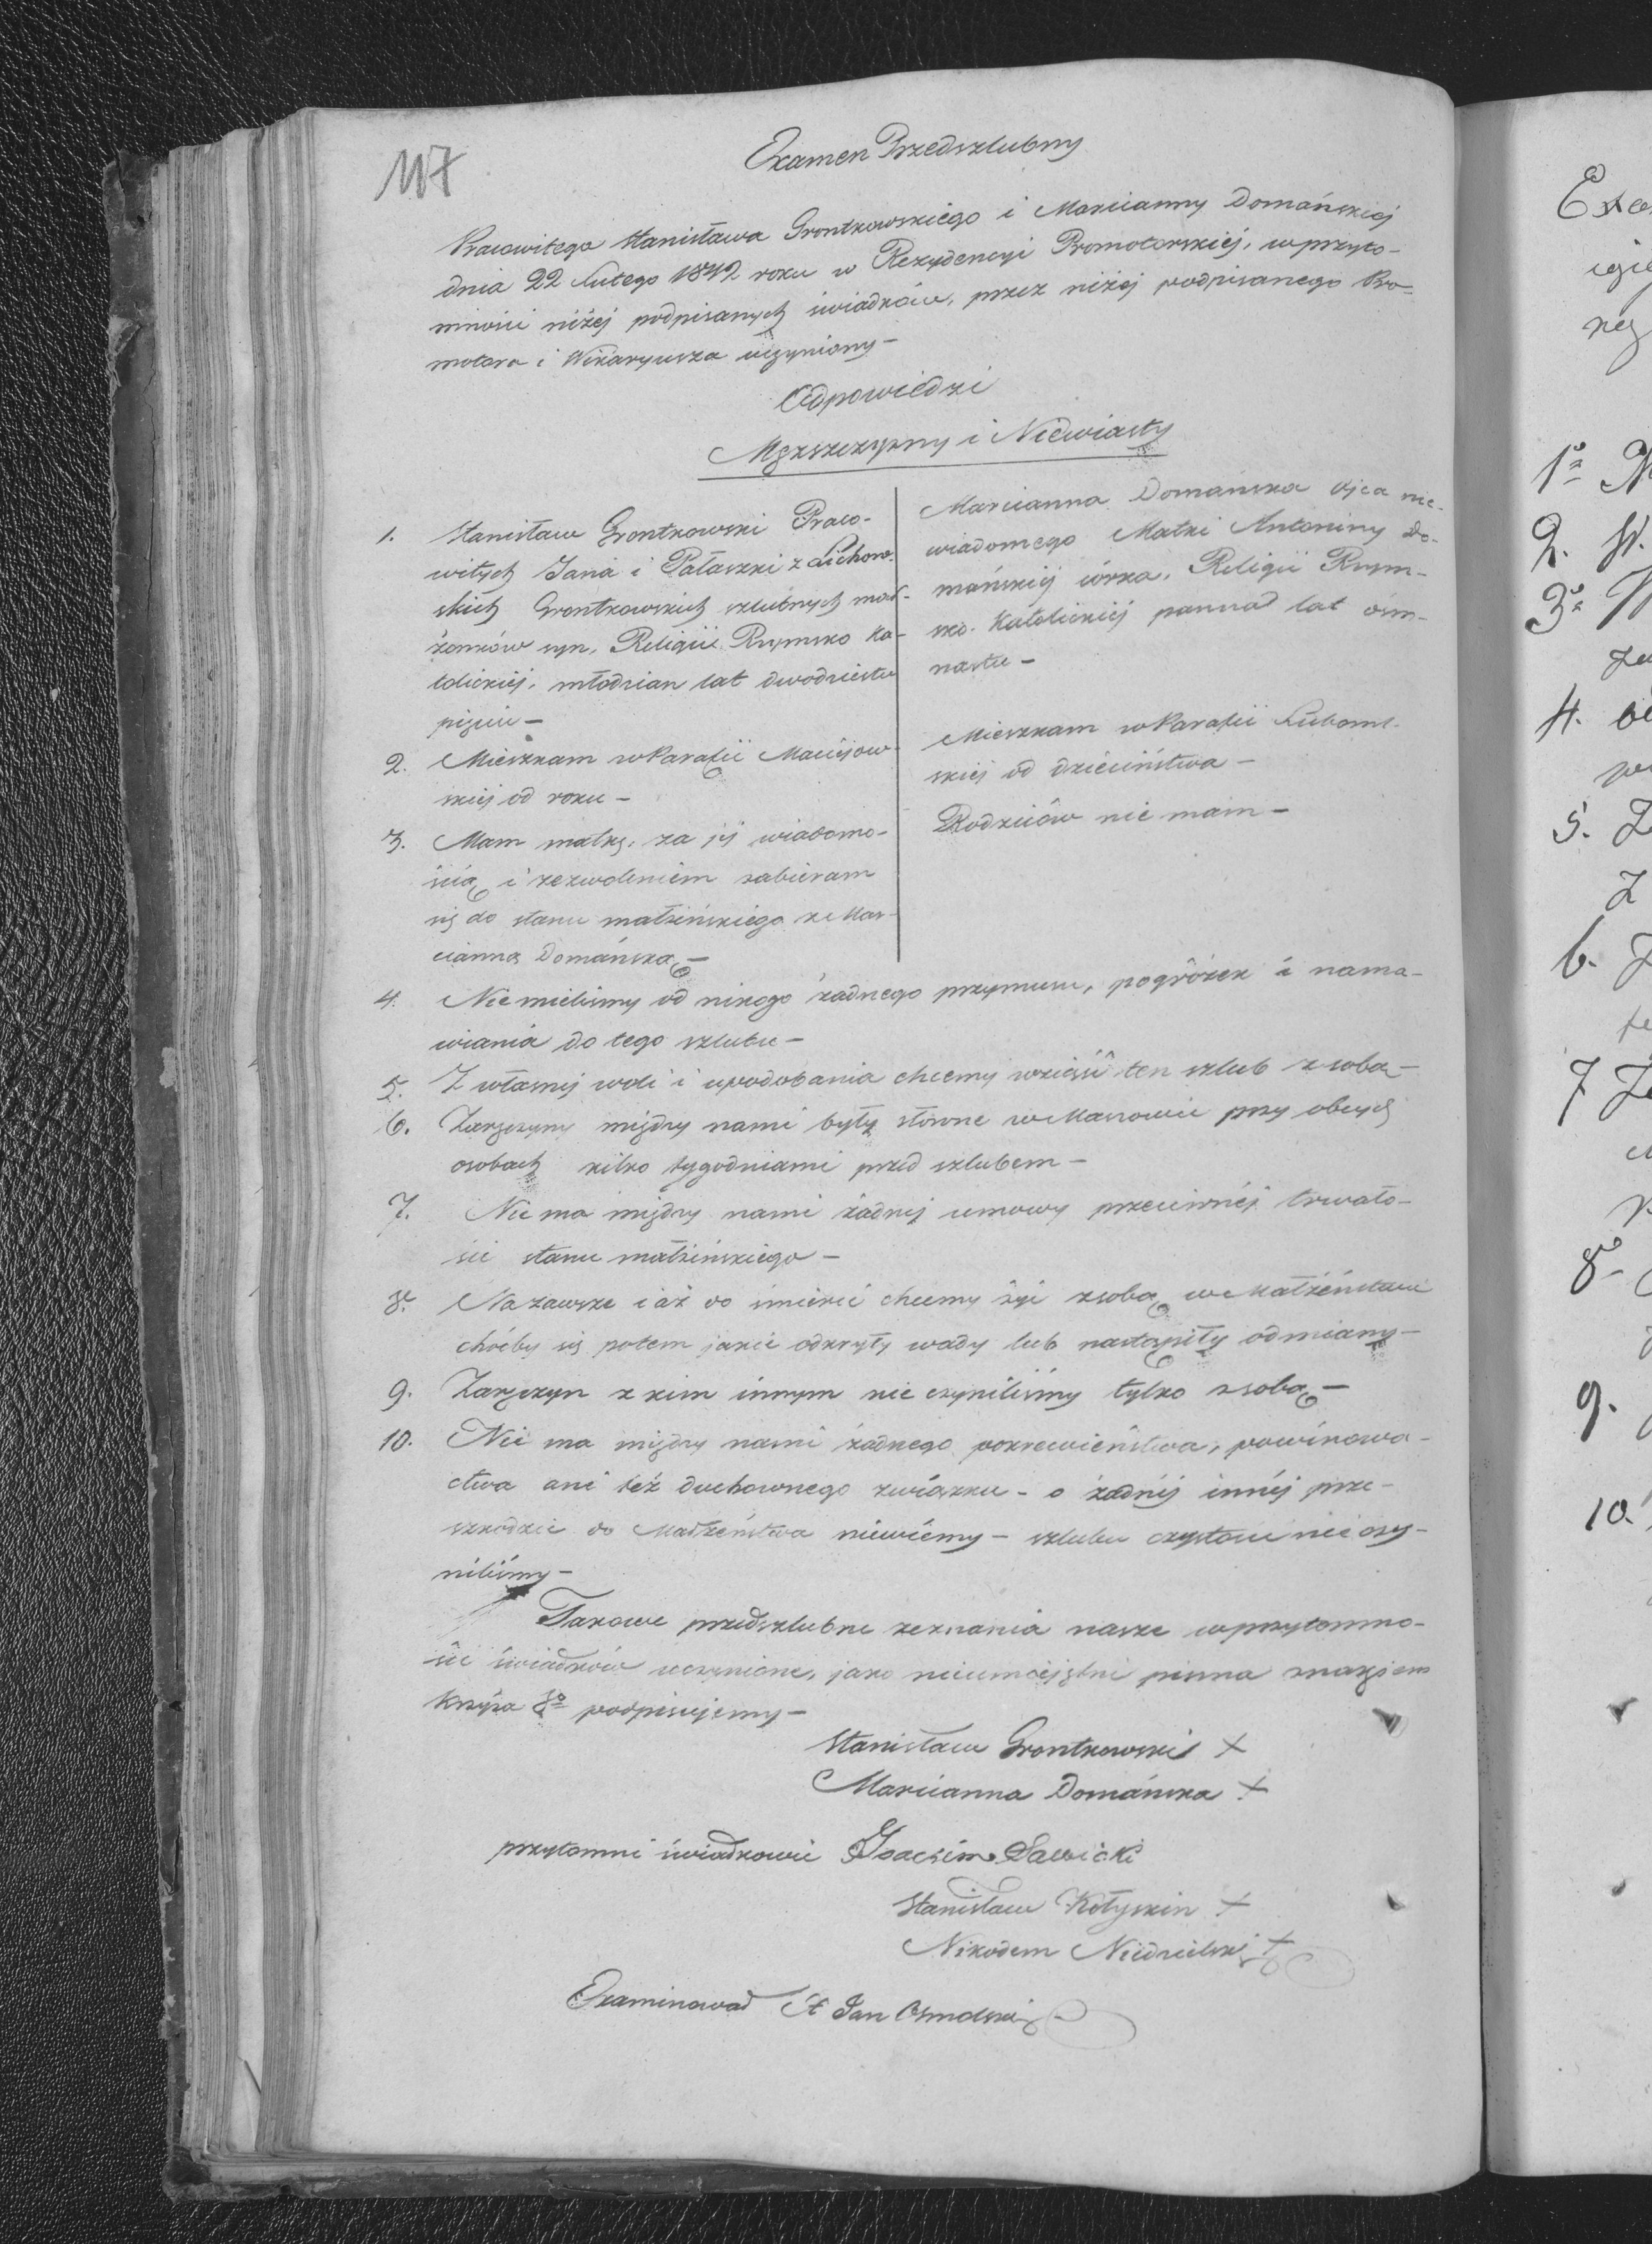 117
Examen Przedszlubny
Pracowitego Stanisława Grontkowskiego i Marcianny Domańskiej
dnia 22 Lutego 1842 roku w Rezydencyi Promotorskiej, w przyto-
mności niżej podpisanych świadków, przez niżej podpisanego Pro-
motora i Wikaryusza uczyniony –
Odpowiedzi
Męższczyzny i Niewiasty
1. Stanisław Grontkowski Praco-
witych Jana i Pałaszki z Lichow-
skich Grontkowskich szlubnych mał-
żonków syn, Religii Rzymsko Ka-
tolickiej, młodzian lat dwodziestu
pięciu –
2. Mieszkam w Parafii Maciejow-
skiej od roku –
3. Mam matkę, za jej wiadomo-
ścią i zezwoleniem zabieram
się do stanu małżeńskiego z Mar-
cianną Domańską –
Marcianna Domańska Ojca nie-
wiadomego Matki Antoniny Do-
mańskiej córka, Religii Rzym-
sko-Katolickiej panna lat ośm-
nastu –
Mieszkam w Parafii Luboml-
skiej od dzieciństwa –
Rodziców nie mam –
4. Nie mieliśmy od nikogo żadnego przymusu, pogróżek i nama-
wiania do tego szlubu –
5. Z własnej woli i upodobania chcemy wziąść ten szlub z sobą –
6. Zaręczyny między nami były słowne w Masłowie przy obcych
osobach kilko tygodniami przed szlubem –
7. Nie ma między nami żadnej umowy przeciwnéj trwało-
ści stanu małżeńskiego –
8. Na zawsze i aż do śmierci chcemy żyć z sobą w Małżeństwie
choćby się potem jakie odkryły wady lub nastąpiły odmiany –
9. Zaręczyn z kim innym nie czyniliśmy tylko z sobą –
10. Nie ma między nami żadnego pokrewieństwa, powinowa-
ctwa ani też duchownego związku – o żadnéj innéj prze-
szkodzie do Małżeństwa niewiemy – szlubu czystości nie czy-
niliśmy –
Takowe przedszlubne zeznania nasze w przytomno-
ści świadków uczynione, jako nieumiejętni pisma znakiem
Krzyża Sgo podpisujemy –
Stanisław Grontkowski +
Marcianna Domańska +
przytomni świadkowie Joachim Sawicki
Stanisław Kołyskin +
Nikodem Niedzielski +
Examinował X Jan Osmolski
Exa
1º
2. St.
3º
4.
5. Z
6. J
7
8º
9.
10.